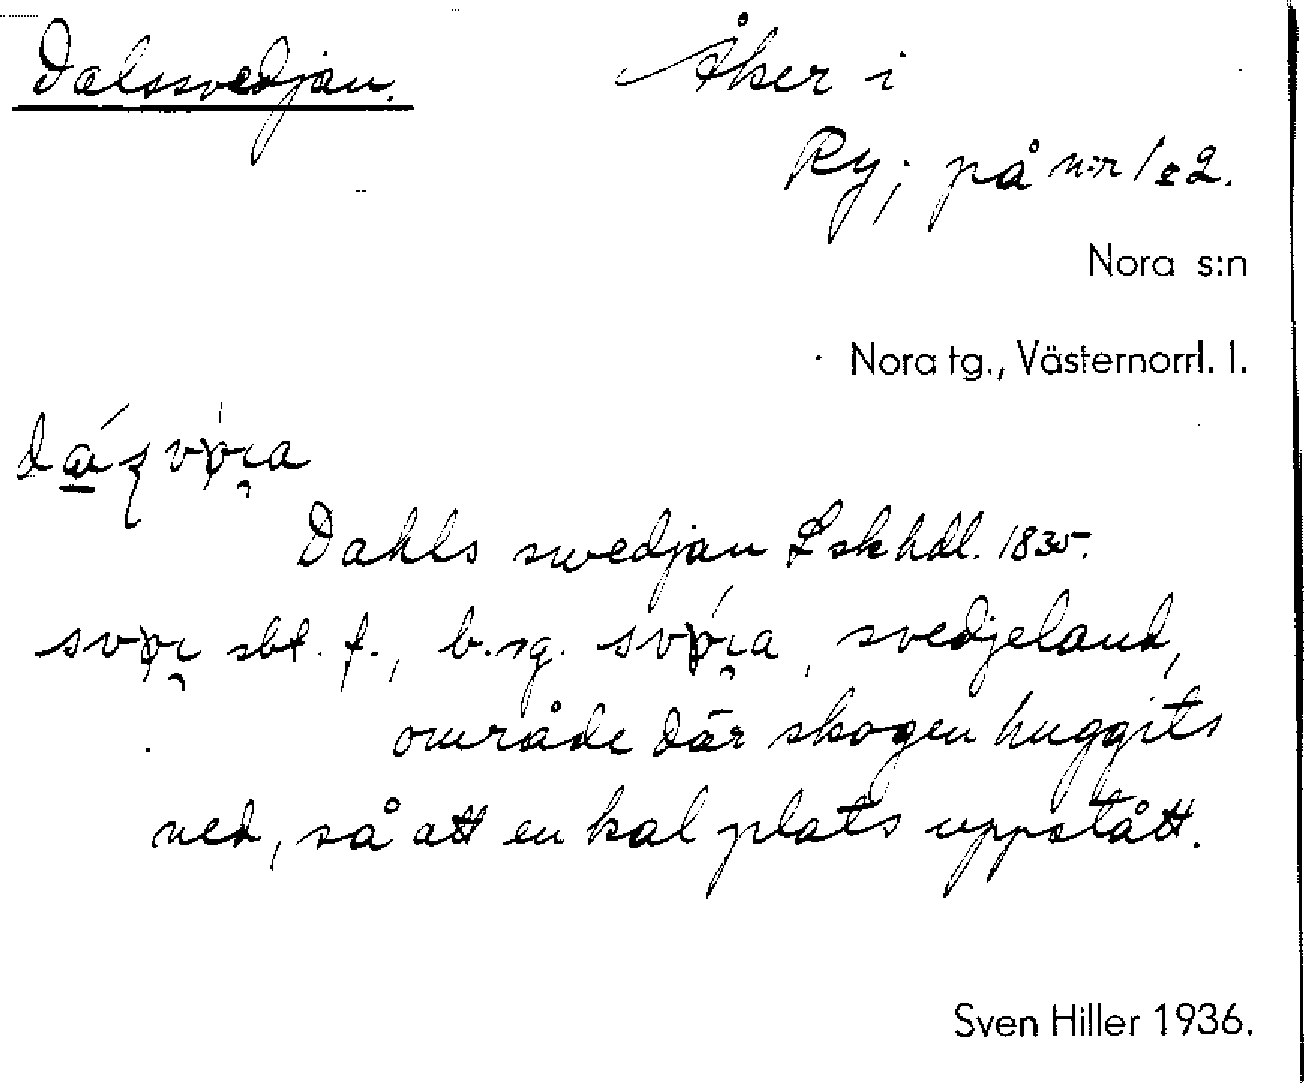 Dalssvedjan. Åker i
Ry; på n:r 1 o 2.
Nora s:n
Nora tg., Västernorrl. l.
Dahls swedjan L skhdl. 1835.
sbt. f., b. sg. svedjeland,
område där skogen huggits
ned, så att en kal plats uppstått.
Sven Hiller 1936.